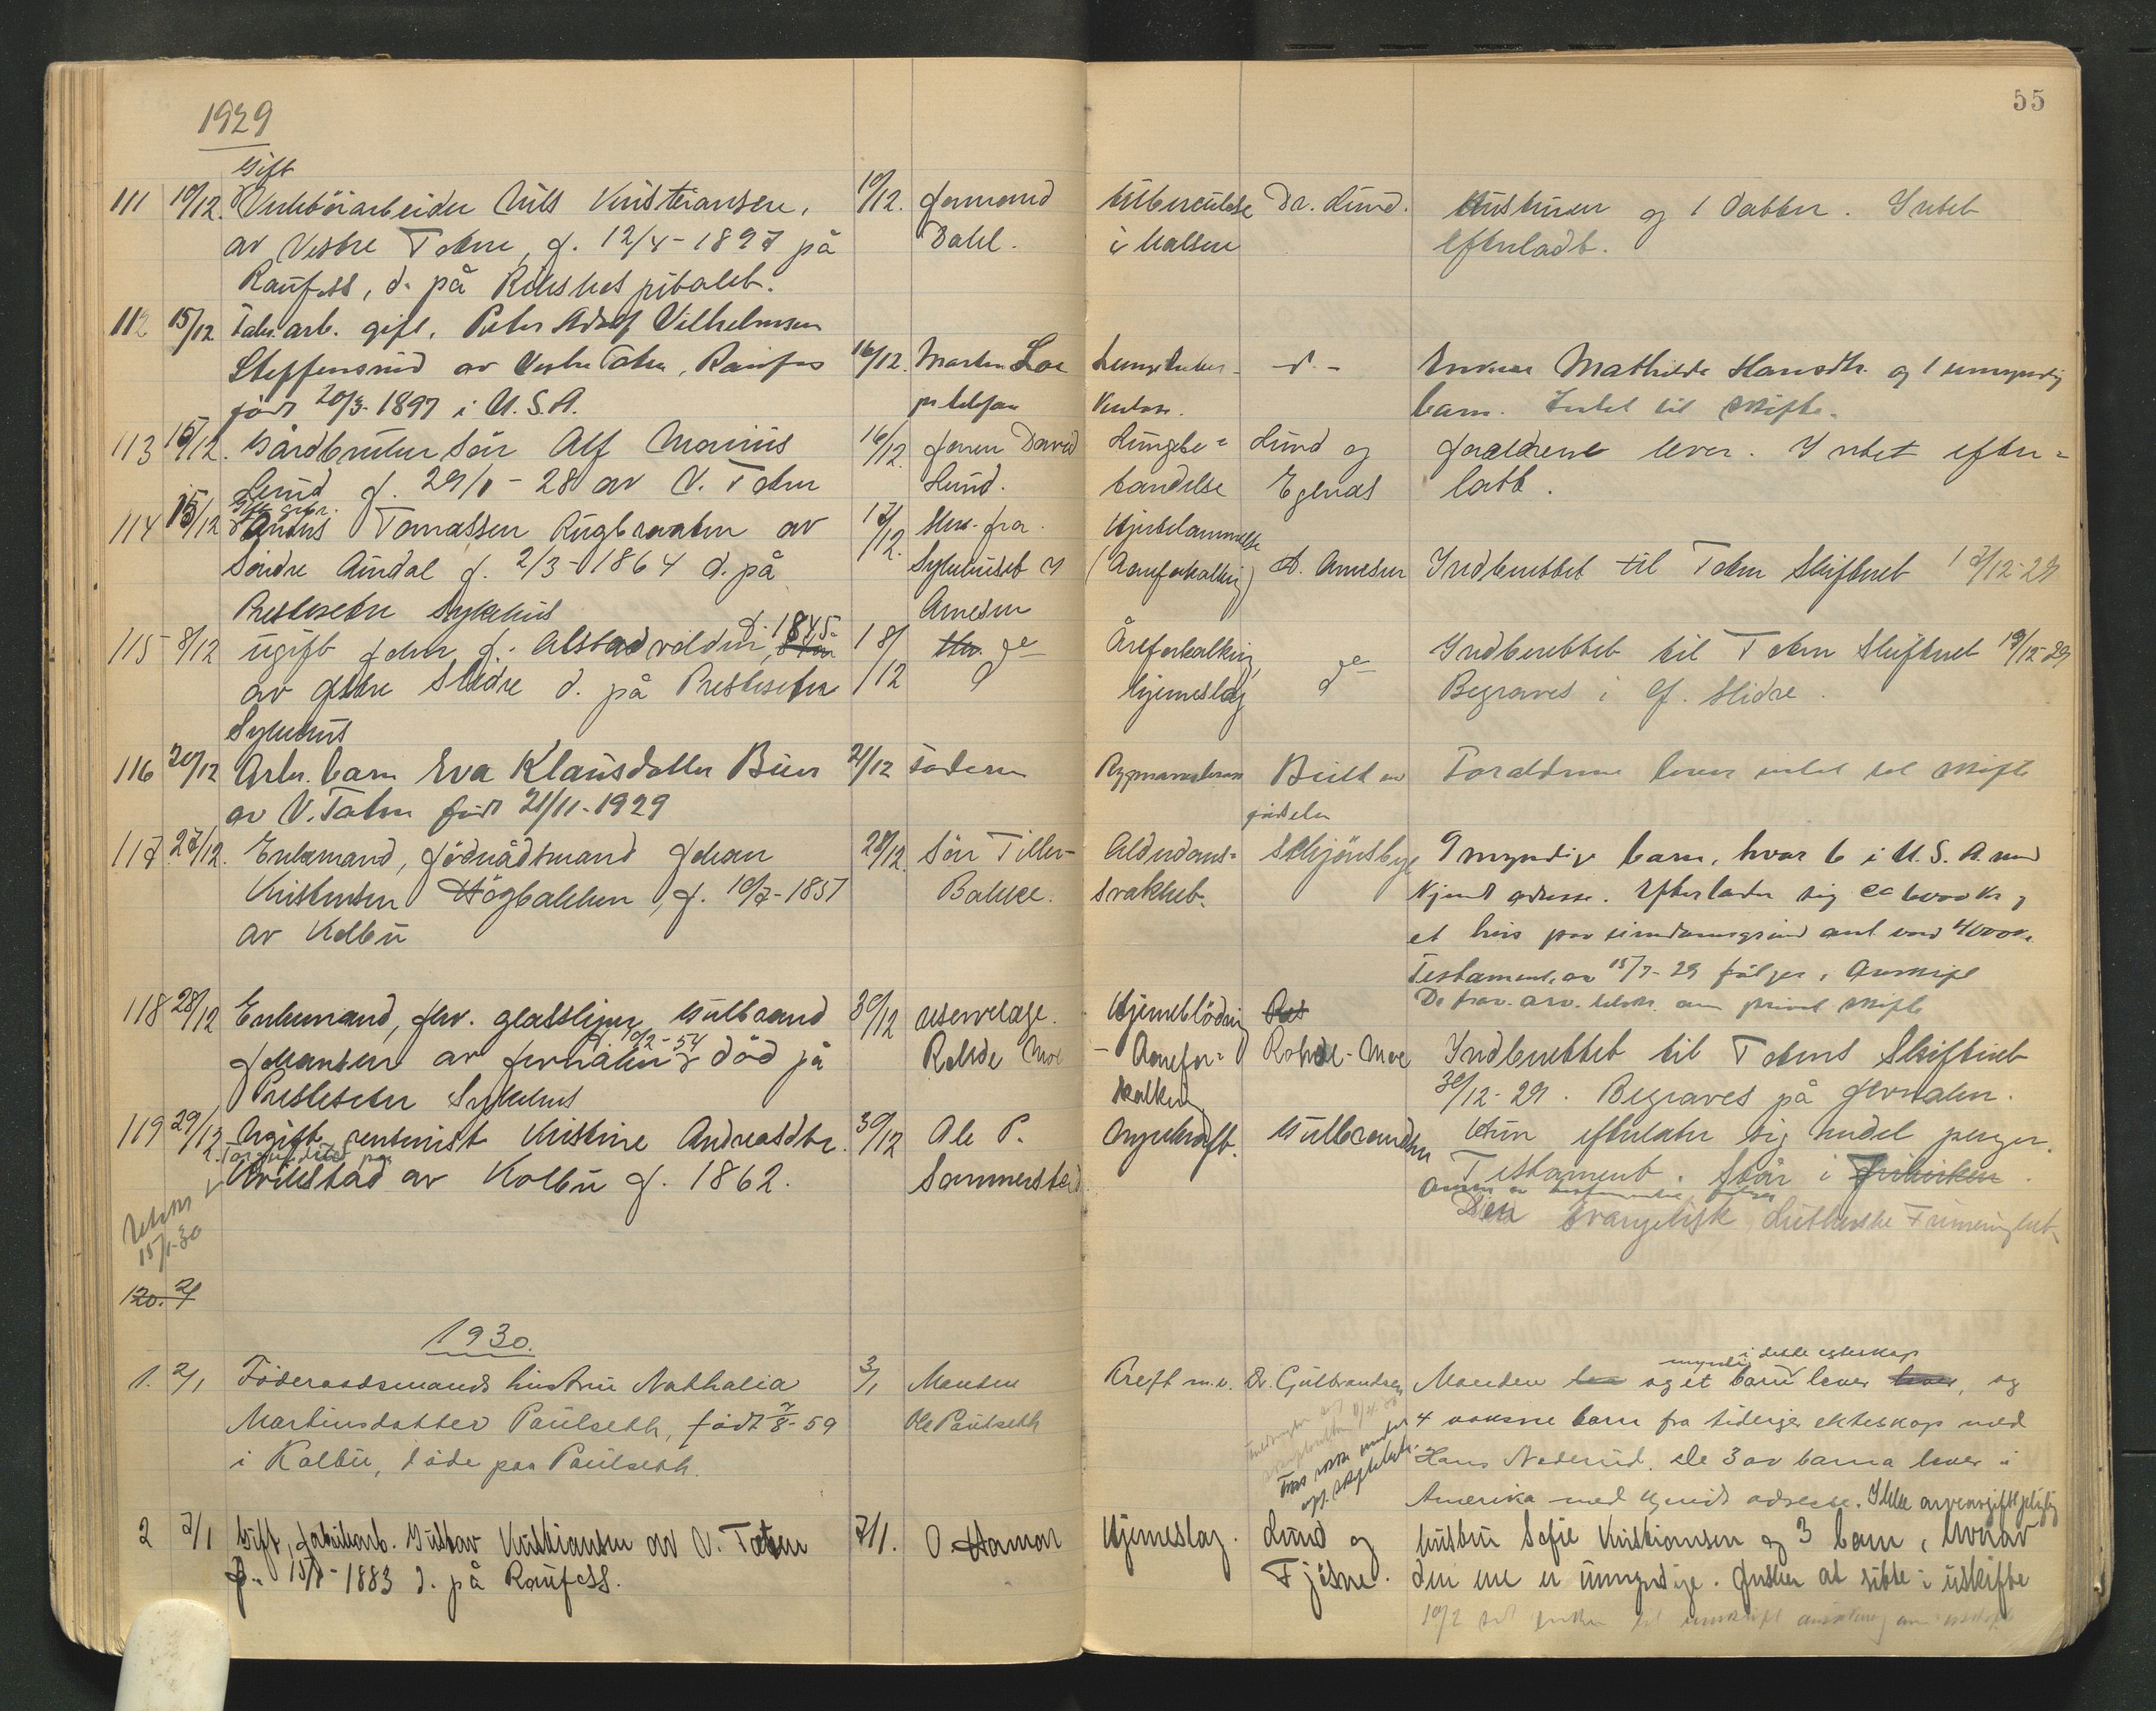 55
1929
Gift
111 10/12. Verkstöiarbeider Nils Kristiansen,
av Vestre Toten, f. 12/4-1897 på
Raufoss, d. på Rikshospitalet.
10/12. Formand
Dahl.
tuberculose
i halsen
Dr. Lund.
Hustruen og 1 datter. Intet
efterladt.
112 15/12 Fabr. arb. gift. Peter Adolf Vilhelmsen
Steffensrud av Vestre Toten, Raufoss
födt 20/3-1897 i U.S.A.
16/12. Morten Loe
pr telefon
Lungetuber-
kulose.
d. -
Enken Mathilde Hansdtr. og 1 umyndig
barn. Intet til skifte.
113 15/12. Gårdbruker sön Alf Marius
Lund f. 29/1-28 av V. Toten
16/12. faren David
Lund.
Lungebe-
tændelse
Lund og
Egenæs
Foreldrene lever. Intet efter-
latt.
114 15/12 Tomassen Rugbraaten av
Söndre Aurdal f. 2/3-1864 d. på
Presteseter sykehus
17/12. Sykehuset v
Arnesen
Hjertelammelse
(Aareforkalkning)
D. Arnesen
Indberettet til Toten Skifteret 17/12-29
115 8/12 ugift John J. Alstadvolden, f. 1845
av Östre Slidre d. på Presteseter
Sykehus
18/12
do
Åreforkalkning,
hjerneslag
do
Indberettet til Toten Skifteret 19/12-29
Begraves i Ö. Slidre.
116 20/12 Arb. barn Eva Klausdatter Buer
av V. Toten födt 21/11-1929
21/12 faderen
Rygmarvsbrok
fødselen
Foreldrene lever intet til skifte
117. 27/12. Enkemand, födrådsmand Johan
Kristensen Högbakken, f. 10/7-1857
av Kolbu
28/12. Sön Tiller-
Bakke.
Alderdoms-
svakhet.
Skjönsbye
9 myndige barn, hvor 6 i U.S.A. med
kjent adresse. Efterlater sig ca 6000 kr og
et hus paa eiendomsgrund ant. verd 4000.
Testament av 15/7-29 følger i avskrift
118 28/12 Enkemand, fhv. glassliper Gulbrand
Johansen av Jevnaker f. 10/2-54 död på
Presteseter Sykehus
30/12 reservelæge.
Rohde Moe
Hjerneblödning
- Aarefor-
kalkning
Rohde-Moe
Indberettet til Totens Skifteret
30/12-29. Begraves på Jevnaker.
119 29/12. Ugift rentenist Kristine Andreasdtr.
Kvilstad av Kolbu f. 1862.
30/12 Ole P.
Sommerstad.
Angrekraft.
Gulbrandsen
Hun efterlater sig endel penger.
Testament. Står i Frikirken.
Den Evangelisk Lutherske Frimenighet.
15/1-30
120. 2/1
1930.
1. 2/1 Föderaadsmands hustru Nathalia
Martinsdatter Paulseth, födt 7/8-59
i Kolbu, döde paa Paulseth.
3/1 Manden
Ole Paulseth
Kreft m.v.
Dr. Gulbrandsen
myndig i dette egteskap
Manden og et barn lever, og
4 voksne barn fra tidligere ekteskap med
Hans Nederud. De 3 av barna lever i
Amerika med kjendt adresse. Ikke arveavgiftspligtig
2 7/1 Gift, fabrikarb. Gustav Kristiansen av V. Toten
f. 15/8-1883 d. på Raufoss.
7/1. O Hamar
Hjerneslag.
Lund og
Fjösne.
hustru Sofie Kristiansen og 3 barn, hvorav
den ene er umyndige. Önsker at sitte i uskifte